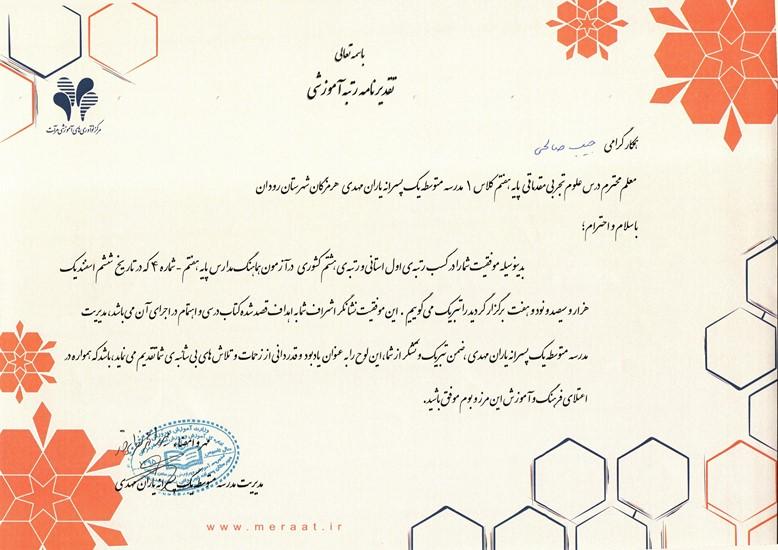 باسمه تعالی
تقدیرنامه رتبه آموزشی
مرکز نوآوری‌های آموزشی مرآت
همکار گرامی حبیب صالحی
معلم محترم درس علوم تجربی مقدماتی پایه هفتم کلاس ۱ مدرسه متوسطه یک پسرانه یاران مهدی هرمزگان شهرستان رودان
با سلام و احترام؛
بدینوسیله موفقیت شما را در کسب رتبه‌ی اول استانی و رتبه‌ی هشتم کشوری در آزمون هماهنگ مدارس پایه هفتم - شماره ۴ که در تاریخ ششم اسفند یک
هزار و سیصد و نود و هفت برگزار گردید را تبریک می‌گوییم. این موفقیت نشانگر اشراف شما به اهداف قصد شده کتاب درسی و اهتمام در اجرای آن می‌باشد، مدیریت
مدرسه متوسطه یک پسرانه یاران مهدی، ضمن تبریک و تشکر از شما، این لوح را به عنوان یادبود و قدردانی از زحمات و تلاش های بی شائبه‌ی شما تقدیم می نماید، باشد که همواره در
اعتلای فرهنگ و آموزش این مرز و بوم موفق باشید.
مهر و امضاء
مدیریت مدرسه متوسطه یک پسرانه یاران مهدی
www.meraat.ir